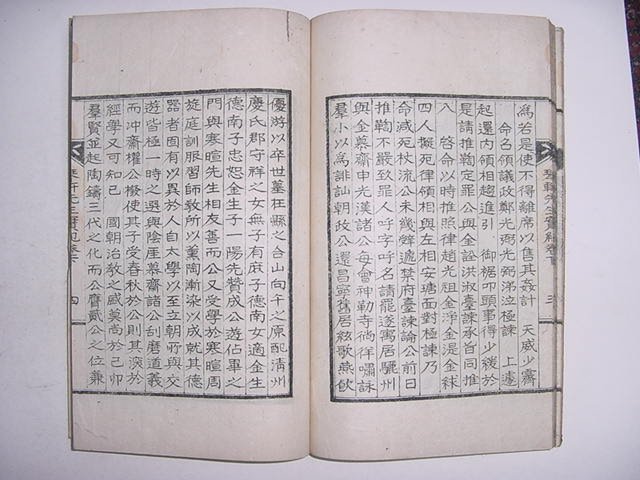 為若是使不得離席以售其姦計　天威少霽
　命名領議政鄭光弼光弼涕泣極諫　上遽
起還內領相趨進引　御裾叩頭事得少緩於
是請推勒定罪公與金銓洪淑臺諫承旨同推
八　啓命以時推照律趙光祖金淨金湜金絿
四人擬死律領相與左相安瑭面對極諫乃
命減死杖流公未幾辭遞禁府臺諫論公前日
推勒不嚴致罪人呼字呼名請罷遂寓居驪州
與金慕齋申光漢諸公每會神勒寺徜徉嘯詠
羣小以為誹訕朝政公還昌寧舊居絃歌燕飲
優游以卒世墓在縣之合山向午之原配淸州
慶氏郡守祥之女無子有庶子德南女適金生
德南子忠恕金生子一陽先贊成公遊佔畢之
門與寒暄先生相友善而公又受學於寒暄周
旋庭訓服習師敎所以薰陶漸染以成就其德
器者固有以異於人自太學以至立朝所與交
遊皆極一時之選與陰崖慕齋諸公刮磨道義
而冲齋權公撥使其子受春秋於公則其深於
經學又可知已　國朝治敎之盛莫尚於己卯
羣賢並起陶鑄三代之化而公膺貳公之位兼
先生實紀卷之
三
四